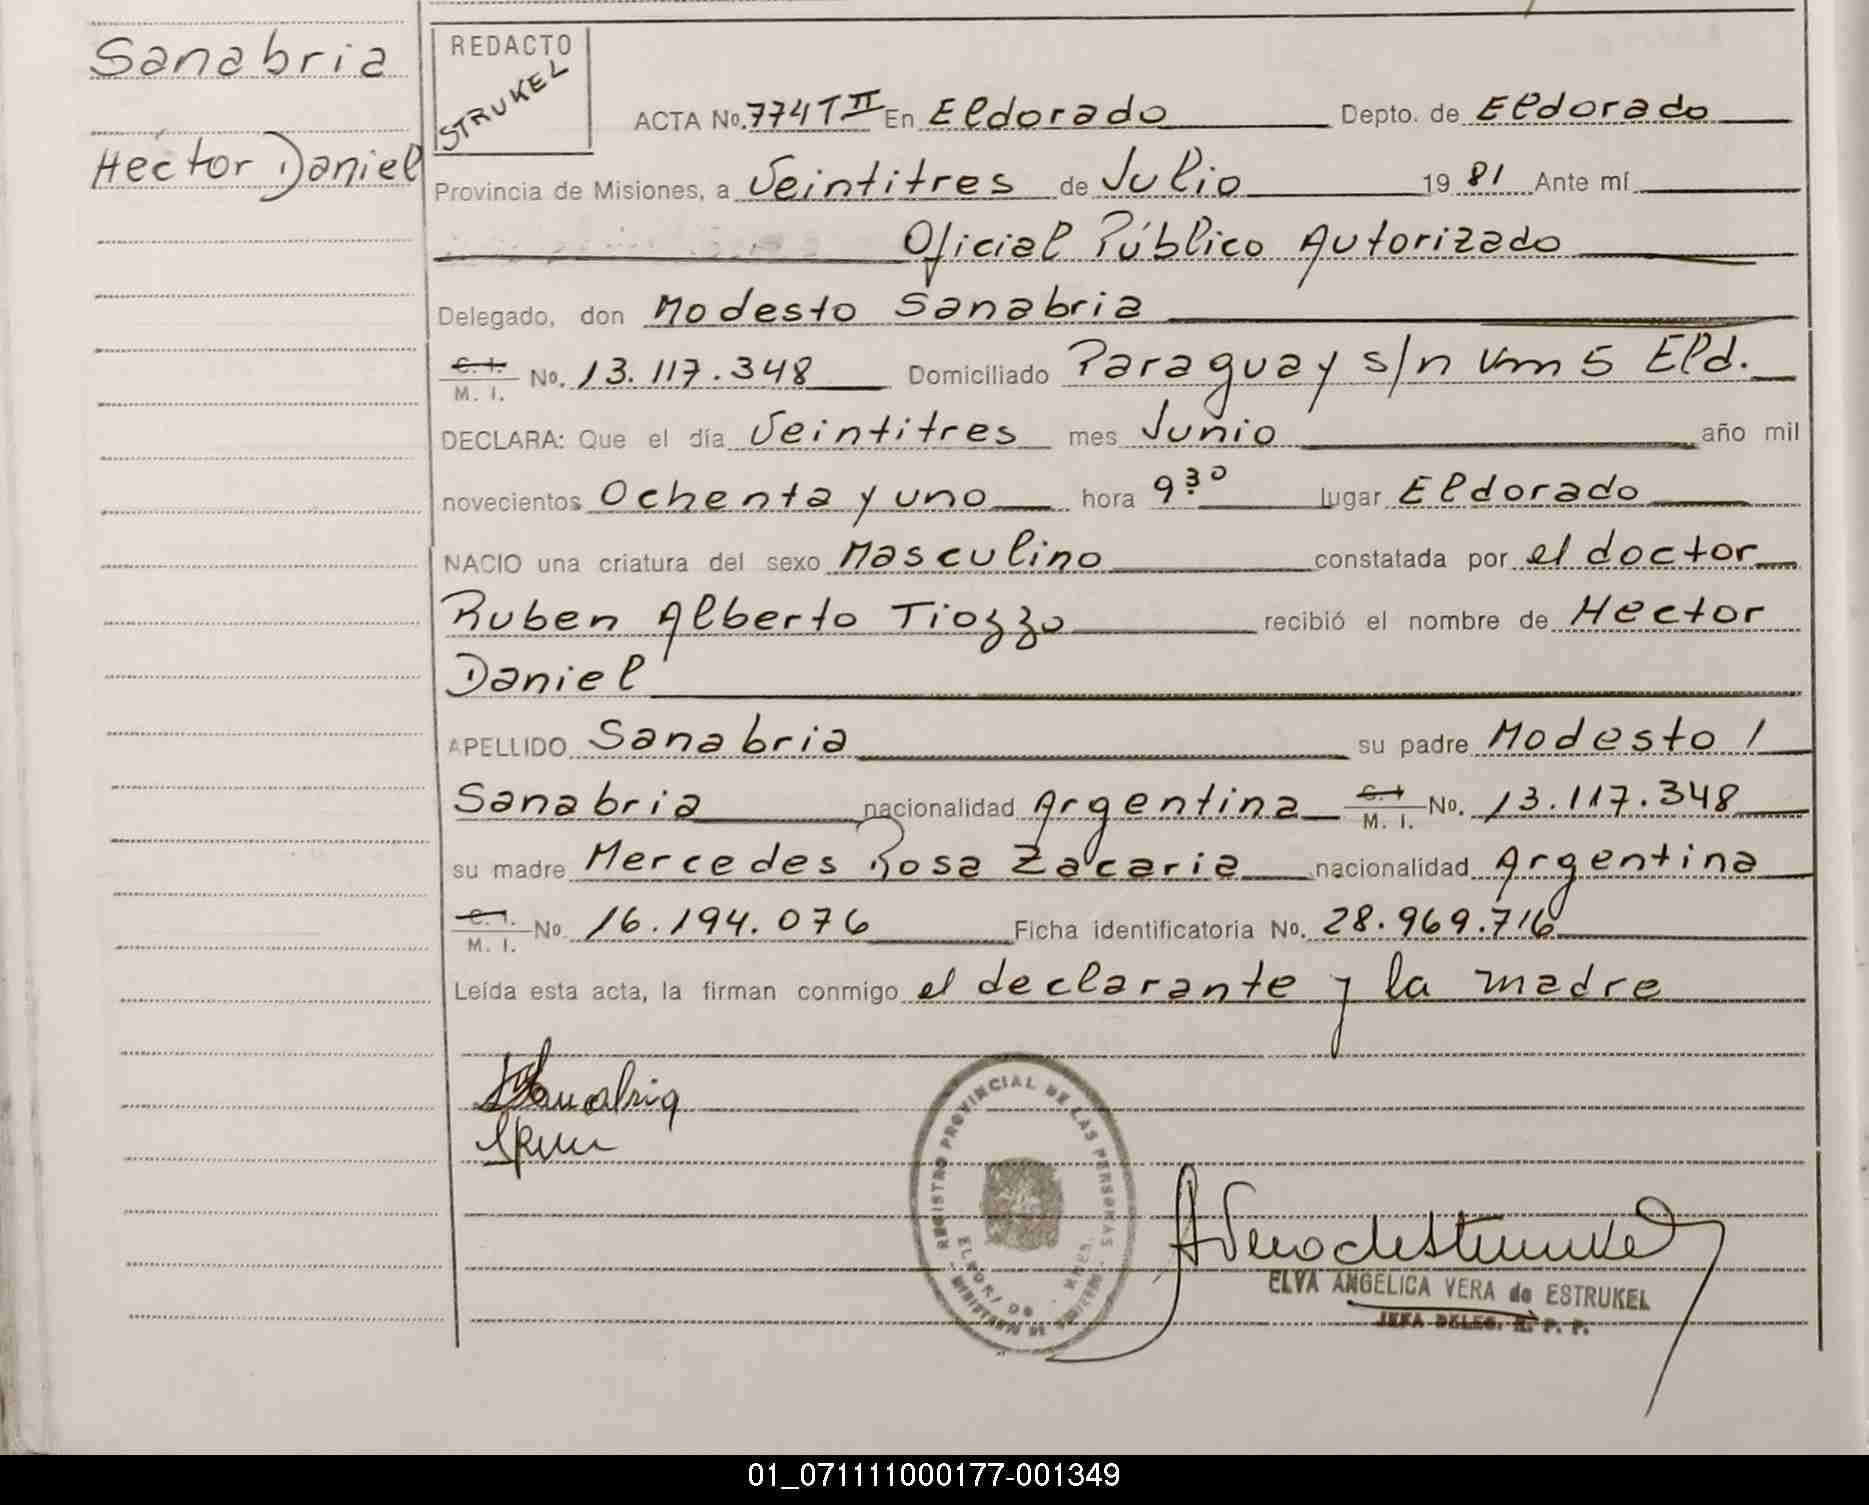 Sanabria
Hector Daniel
REDACTO
STRUKEL
ACTA No. 774 T II En Eldorado Depto. de Eldorado
Provincia de Misiones, a Veintitres de Julio 19 81 Ante mí
Oficial Público Autorizado
Delegado, don Modesto Sanabria
C. I. / M. I. No. 13.117.348 Domiciliado Paraguay s/n km 5 Eld.
DECLARA: Que el día Veintitres mes Junio año mil
novecientos Ochenta y uno hora 9 30 lugar Eldorado
NACIO una criatura del sexo Masculino constatada por el doctor
Ruben Alberto Tiozzo recibió el nombre de Hector
Daniel
APELLIDO Sanabria su padre Modesto /
Sanabria nacionalidad Argentina C. I. / M. I. No. 13.117.348
su madre Mercedes Rosa Zacaria nacionalidad Argentina
C. I. / M. I. No. 16.194.076 Ficha identificatoria No. 28.969.716
Leída esta acta, la firman conmigo el declarante y la madre
Sanabria
REGISTRO PROVINCIAL DE LAS PERSONAS
ELDORADO
ELVA ANGELICA VERA de ESTRUKEL
JEFA DELEG. R. P. P.
01_071111000177-001349